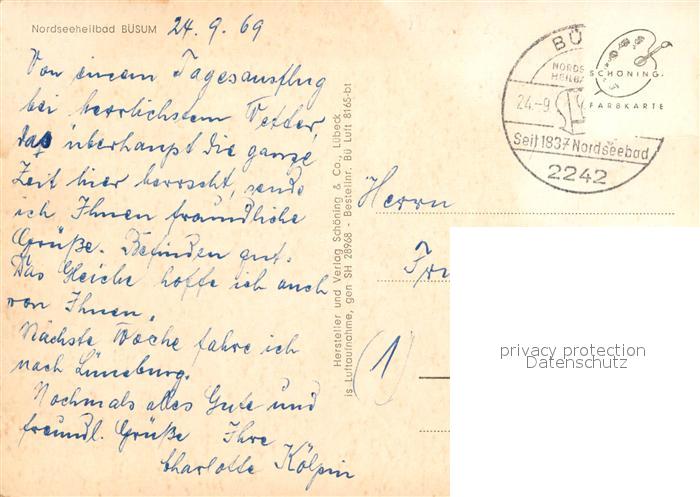 Nordseeheilbad BÜSUM 24.9.69
Von einem Tagesausflug
bei herrlichstem Wetter,
das überhaupt die ganze
Zeit hier herrscht, sende
ich Ihnen freundliche
Grüße. Befinden gut.
Das Gleiche hoffe ich auch
von Ihnen.
Nächste Woche fahre ich
nach Lüneburg.
Nochmals alles Gute und
freundl. Grüße Ihre
Charlotte Kölpin
Hersteller und Verlag Schöning & Co., Lübeck
is Luftaufnahme, gen SH 28968 - Bestellnr. Bü Luft 8165-bt
BÜ
NORDS
HEILBA
24.-9
Seit 1837 Nordseebad
2242
SCHÖNING
FARBKARTE
Herrn
(1)
privacy protection
Datenschutz